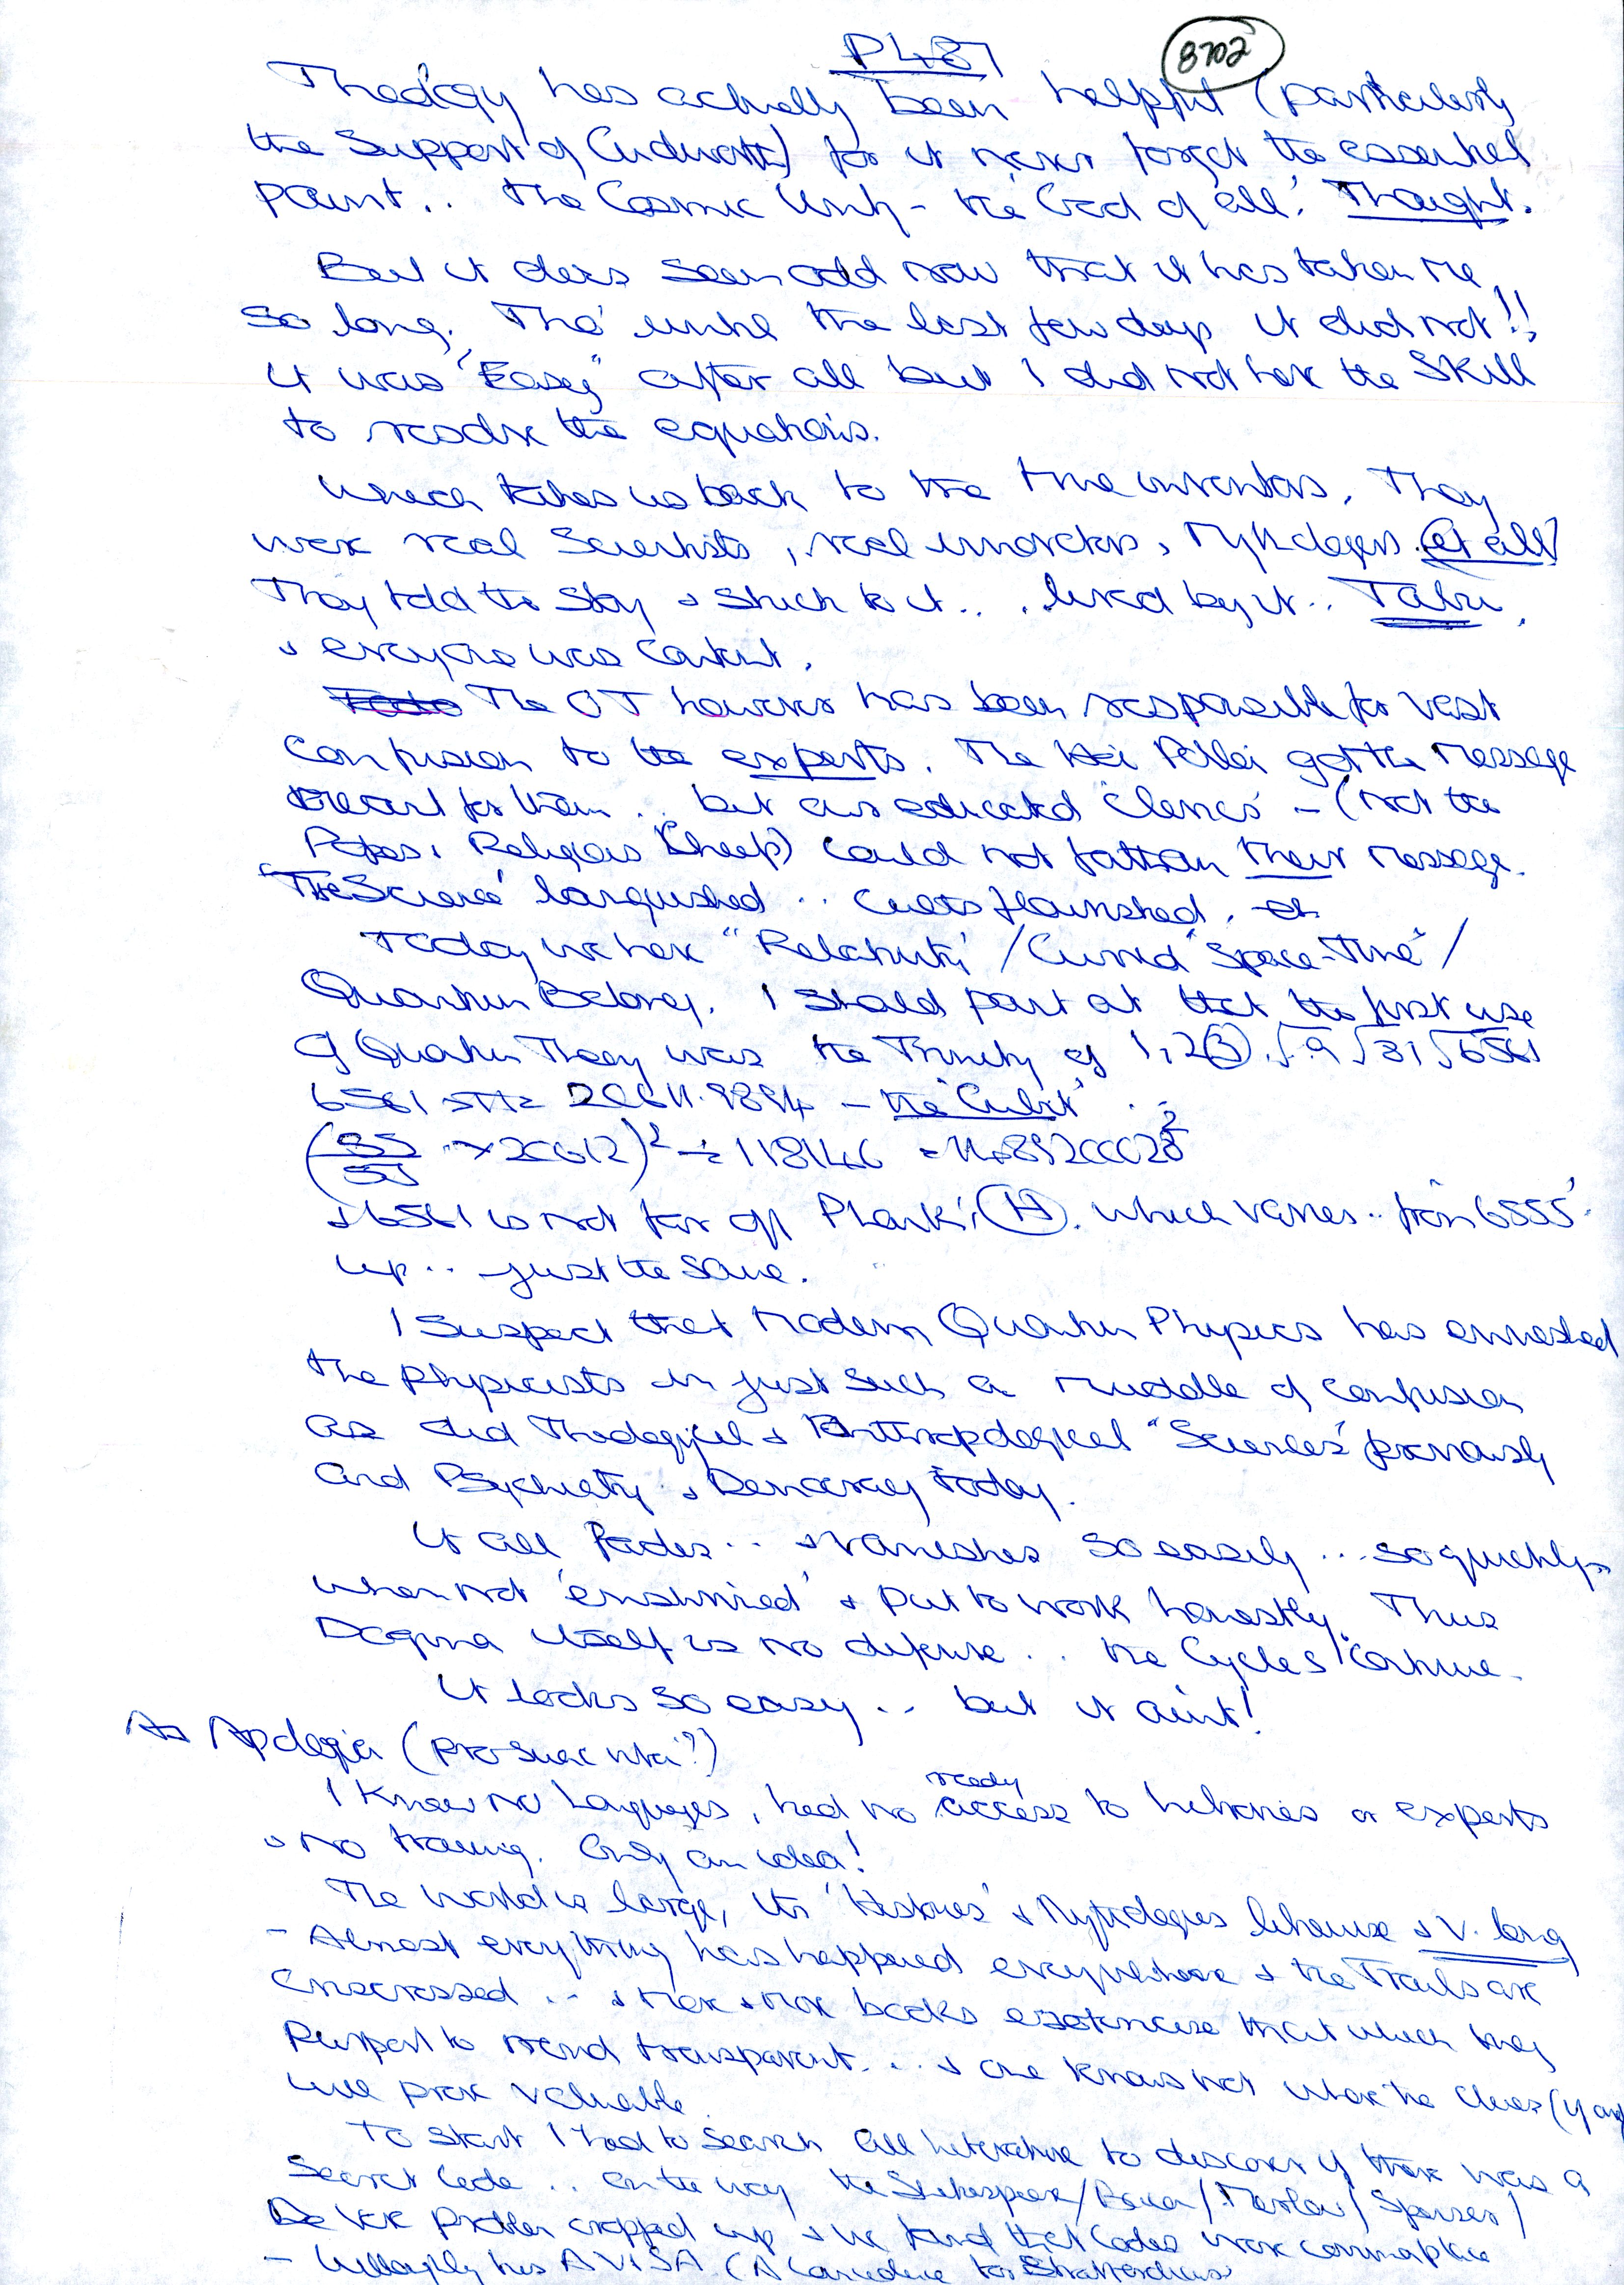 P487
8702
Theology has actually been helpful (particularly
the Support of Cudworth) for it never forgot the essential
point.. the Cosmic Unity - the 'God of all'. Thought.
But it does seem odd now that it has taken me
so long. Tho' until the last few days it did not!!
it was "Easy" after all but I did not have the Skill
to resolve the equations.
Which takes us back to the true inventors. They
were real Scientists, real innovators, Mythologers. et all
They told the Story & Stuck to it... lived by it.. Tabu.
& everyone was content.
The OT however has been responsible for vast
Confusion to the experts. The Hoi Polloi got the message
meant for them .. but our educated 'Clerics' - (not the
Popes, Religious Sheep) could not fathom their message.
'The Science' languished .. Cults flourished.
Today we have "Relativity' / Curved "Space-Time" /
Quantum I should point out that the first use
of Quantum Theory was the Trinity of 1, 2, 3, √9 √81 √6561
6561 = 20611.9894 - the 'Cubit'
x 20612)² ÷ 118146 =
& 6561 is not far off Plank's (H). which varies .. from 6555
up .. just the same.
I suspect that Modern Quantum Physics has enmeshed
the physicists in just such a muddle of confusion
as did Theological & Anthropological "Sciences" previously
and Psychiatry & Democracy today.
It all fades .. & vanishes so easily ... so quickly
when not 'enshrined' & put to work honestly. Thus
Dogma itself is no defense .. the Cycles continue.
It looks so easy .. but it aint!
Apologia (pro suae vita?)
I know no Languages, had no ready access to libraries or experts
& no training. Only an idea!
The world is large, its 'Histories' & Mythologies likewise & V. long
- Almost everything has happened everywhere & the Trails are
Crisscrossed .. & more & more books that which they
Purport to rend transparent ... & one knows not where the Clues (if any)
will prove valuable.
To start I had to search all literature to discover if there was a
Secret Code .. on the way the Shakespeare/Bacon/Marlow/Spenser/
De Vere problem cropped up & we found that Codes were commonplace
- Willoughby his AVISA (A